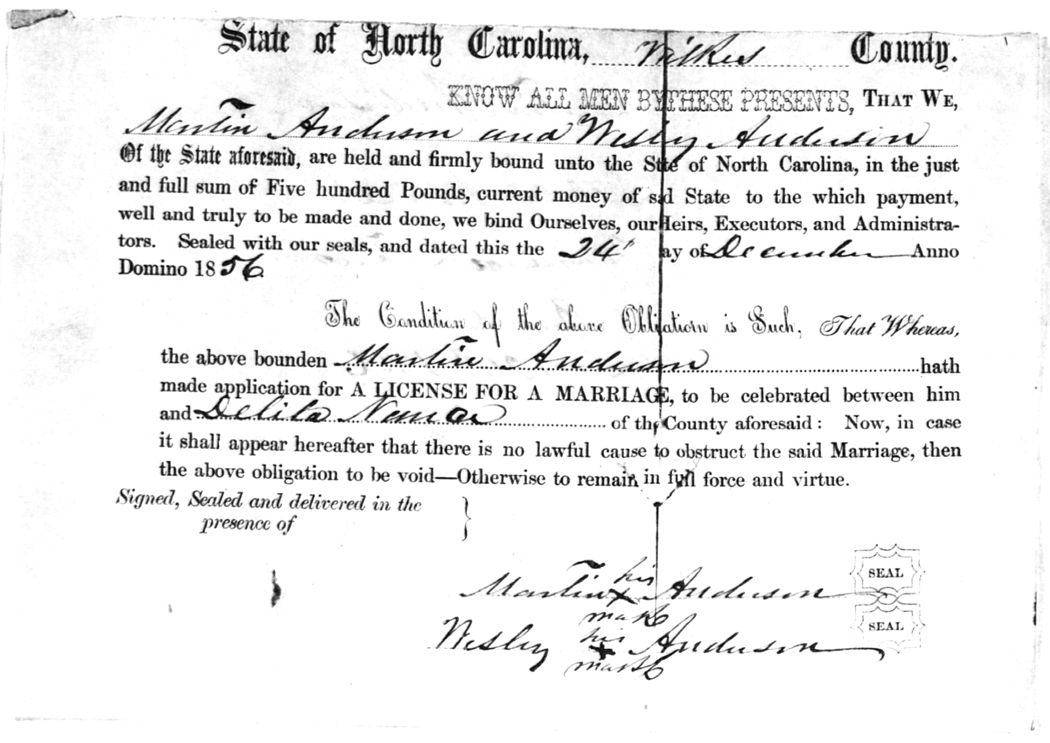 State of North Carolina, Wilkes County.
KNOW ALL MEN BY THESE PRESENTS, THAT WE,
Martin Anderson and Wesley Anderson
Of the State aforesaid, are held and firmly bound unto the State of North Carolina, in the just
and full sum of Five hundred Pounds, current money of said State to the which payment,
well and truly to be made and done, we bind Ourselves, our Heirs, Executors, and Administra-
tors. Sealed with our seals, and dated this the 24" day of December Anno
Domino 1856
The Condition of the above Obligation is Such, That Whereas,
the above bounden Martin Anderson hath
made application for A LICENSE FOR A MARRIAGE, to be celebrated between him
and Delila of the County aforesaid: Now, in case
it shall appear hereafter that there is no lawful cause to obstruct the said Marriage, then
the above obligation to be void—Otherwise to remain in full force and virtue.
Signed, Sealed and delivered in the
presence of
his
Martin X Anderson SEAL
mark
his
Wesley X Anderson SEAL
mark